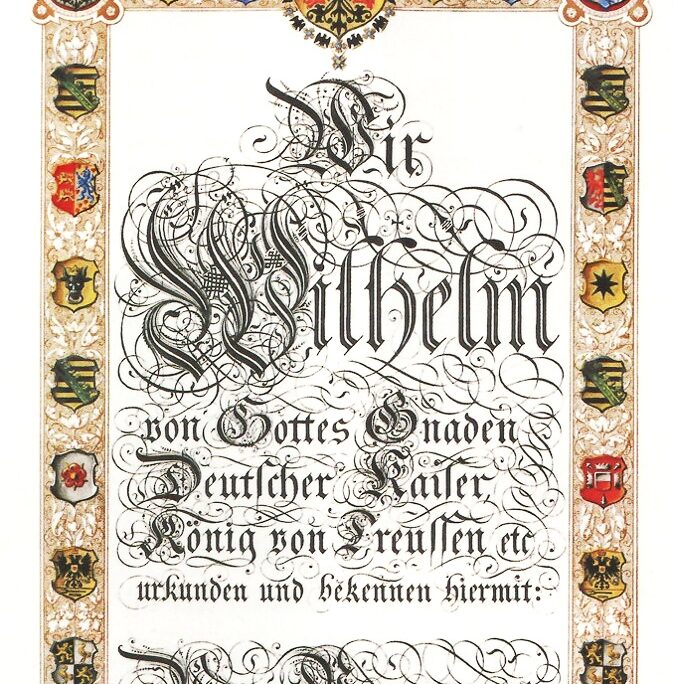 Wir
Wilhelm
von Gottes Gnaden
Deutscher Kaiser,
König von Preussen etc
urkunden und bekennen hiermit: